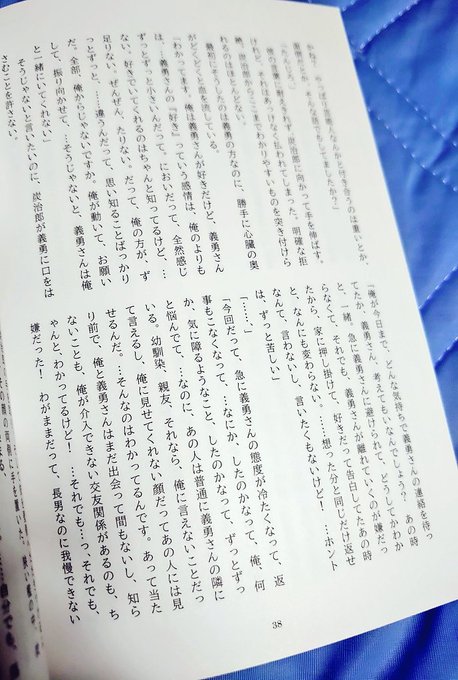 かねて、やっぱり
と付き合うのは重いとか、
面倒だとか、
ましたか？」
「たんじろ」
の言葉に耐えきれず、炭治郎に向かって手を伸ばす。
けれど、それはあっけなく払われてしまった。明確な拒
絶。炭治郎からここまでわかりやすいものを突き付けら
れるのはほとんどない。
最初にそうしたのは義勇の方なのに、勝手に心臓の奥
がどくどくと血を流している。
「わかってます。俺は義勇さんが好きだけど、義勇さん
は…義勇さんの『好き』っていう感情は、俺のよりも
ずっとずっと小さいんだって。においだって、全然感じ
ない。好きでいてくれるのはちゃんと知ってるけど、…
足りない。ぜんぜん、たりない。だって、俺の方が、ず
っとずっと、…違うんだって、思い知ることばっかり
だ。全部、俺からじゃないですか。俺が動いて、お願い
して、振り向かせて、…そうじゃないと、義勇さんは俺
と一緒にいてくれない」
そうじゃないと言いたいのに、炭治郎が義勇に口をは
さむことを許さない。
「俺が今日まで、どんな気持ちで義勇さんの連絡を待っ
てたか、義勇さん、考えてもいないんでしょう？　あの時
と、一緒。急に義勇さんに避けられて、どうしてかわか
らなくて、それでも、義勇さんが離れていくのが嫌だっ
たから、家に押し掛けて、好きだって告白してたあの時
と、なんにも変わらない。……想った分と同じだけ返せ
なんて、言わないし、言いたくもないけど。…ホント
は、ずっと苦しい」
「……」
「今回だって、急に義勇さんの態度が冷たくなって、返
事もこなくなって、…なにか、したのかなって、俺、何
か、気に障るようなこと、したのかなって、ずっとずっ
と悩んでて、…なのに、あの人は普通に義勇さんの隣に
いる。幼馴染、親友、それなら、俺に言えないことだっ
て言えるし、俺に見せてくれない顔だってあの人には見
せるんだ。…そんなのはわかってるんです。あって当た
り前で、俺と義勇さんはまだ出会って間もないし、知ら
ないことも、俺が介入できない交友関係があるのも、ち
ゃんと、わかってるけど！　…それでも…っ、それでも、
嫌だった！　わがままだって、長男なのに我慢できない
38